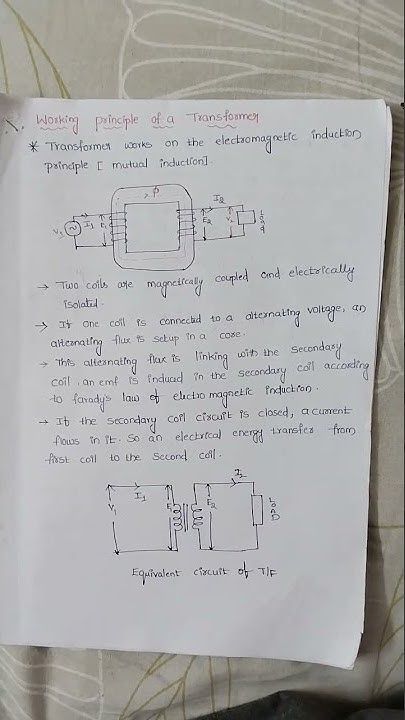 Working principle of a Transformer
* Transformer works on the electromagnetic induction
principle [ mutual induction].
φ
I1
E1
V1
I2
E2
V2
Load
→ Two coils are magnetically coupled and electrically
isolated.
→ If one coil is connected to a alternating voltage, an
alternating flux is setup in a core.
→ This alternating flux is linking with the secondary
coil, an emf is induced in the secondary coil according
to farady's law of electro magnetic induction.
→ If the secondary coil circuit is closed, a current
flows in it. So an electrical energy transfer from
first coil to the second coil.
I1
V1
E1
E2
I2
LOAD
Equivalent circuit of T/F